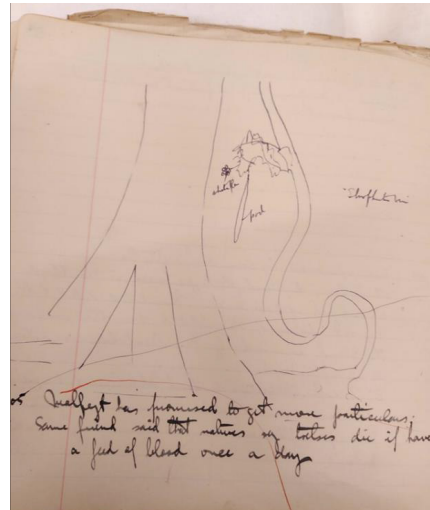 food
05 has promised to get more particulars.
Same friend said that natives say tsetses die if have
a feed of blood once a day